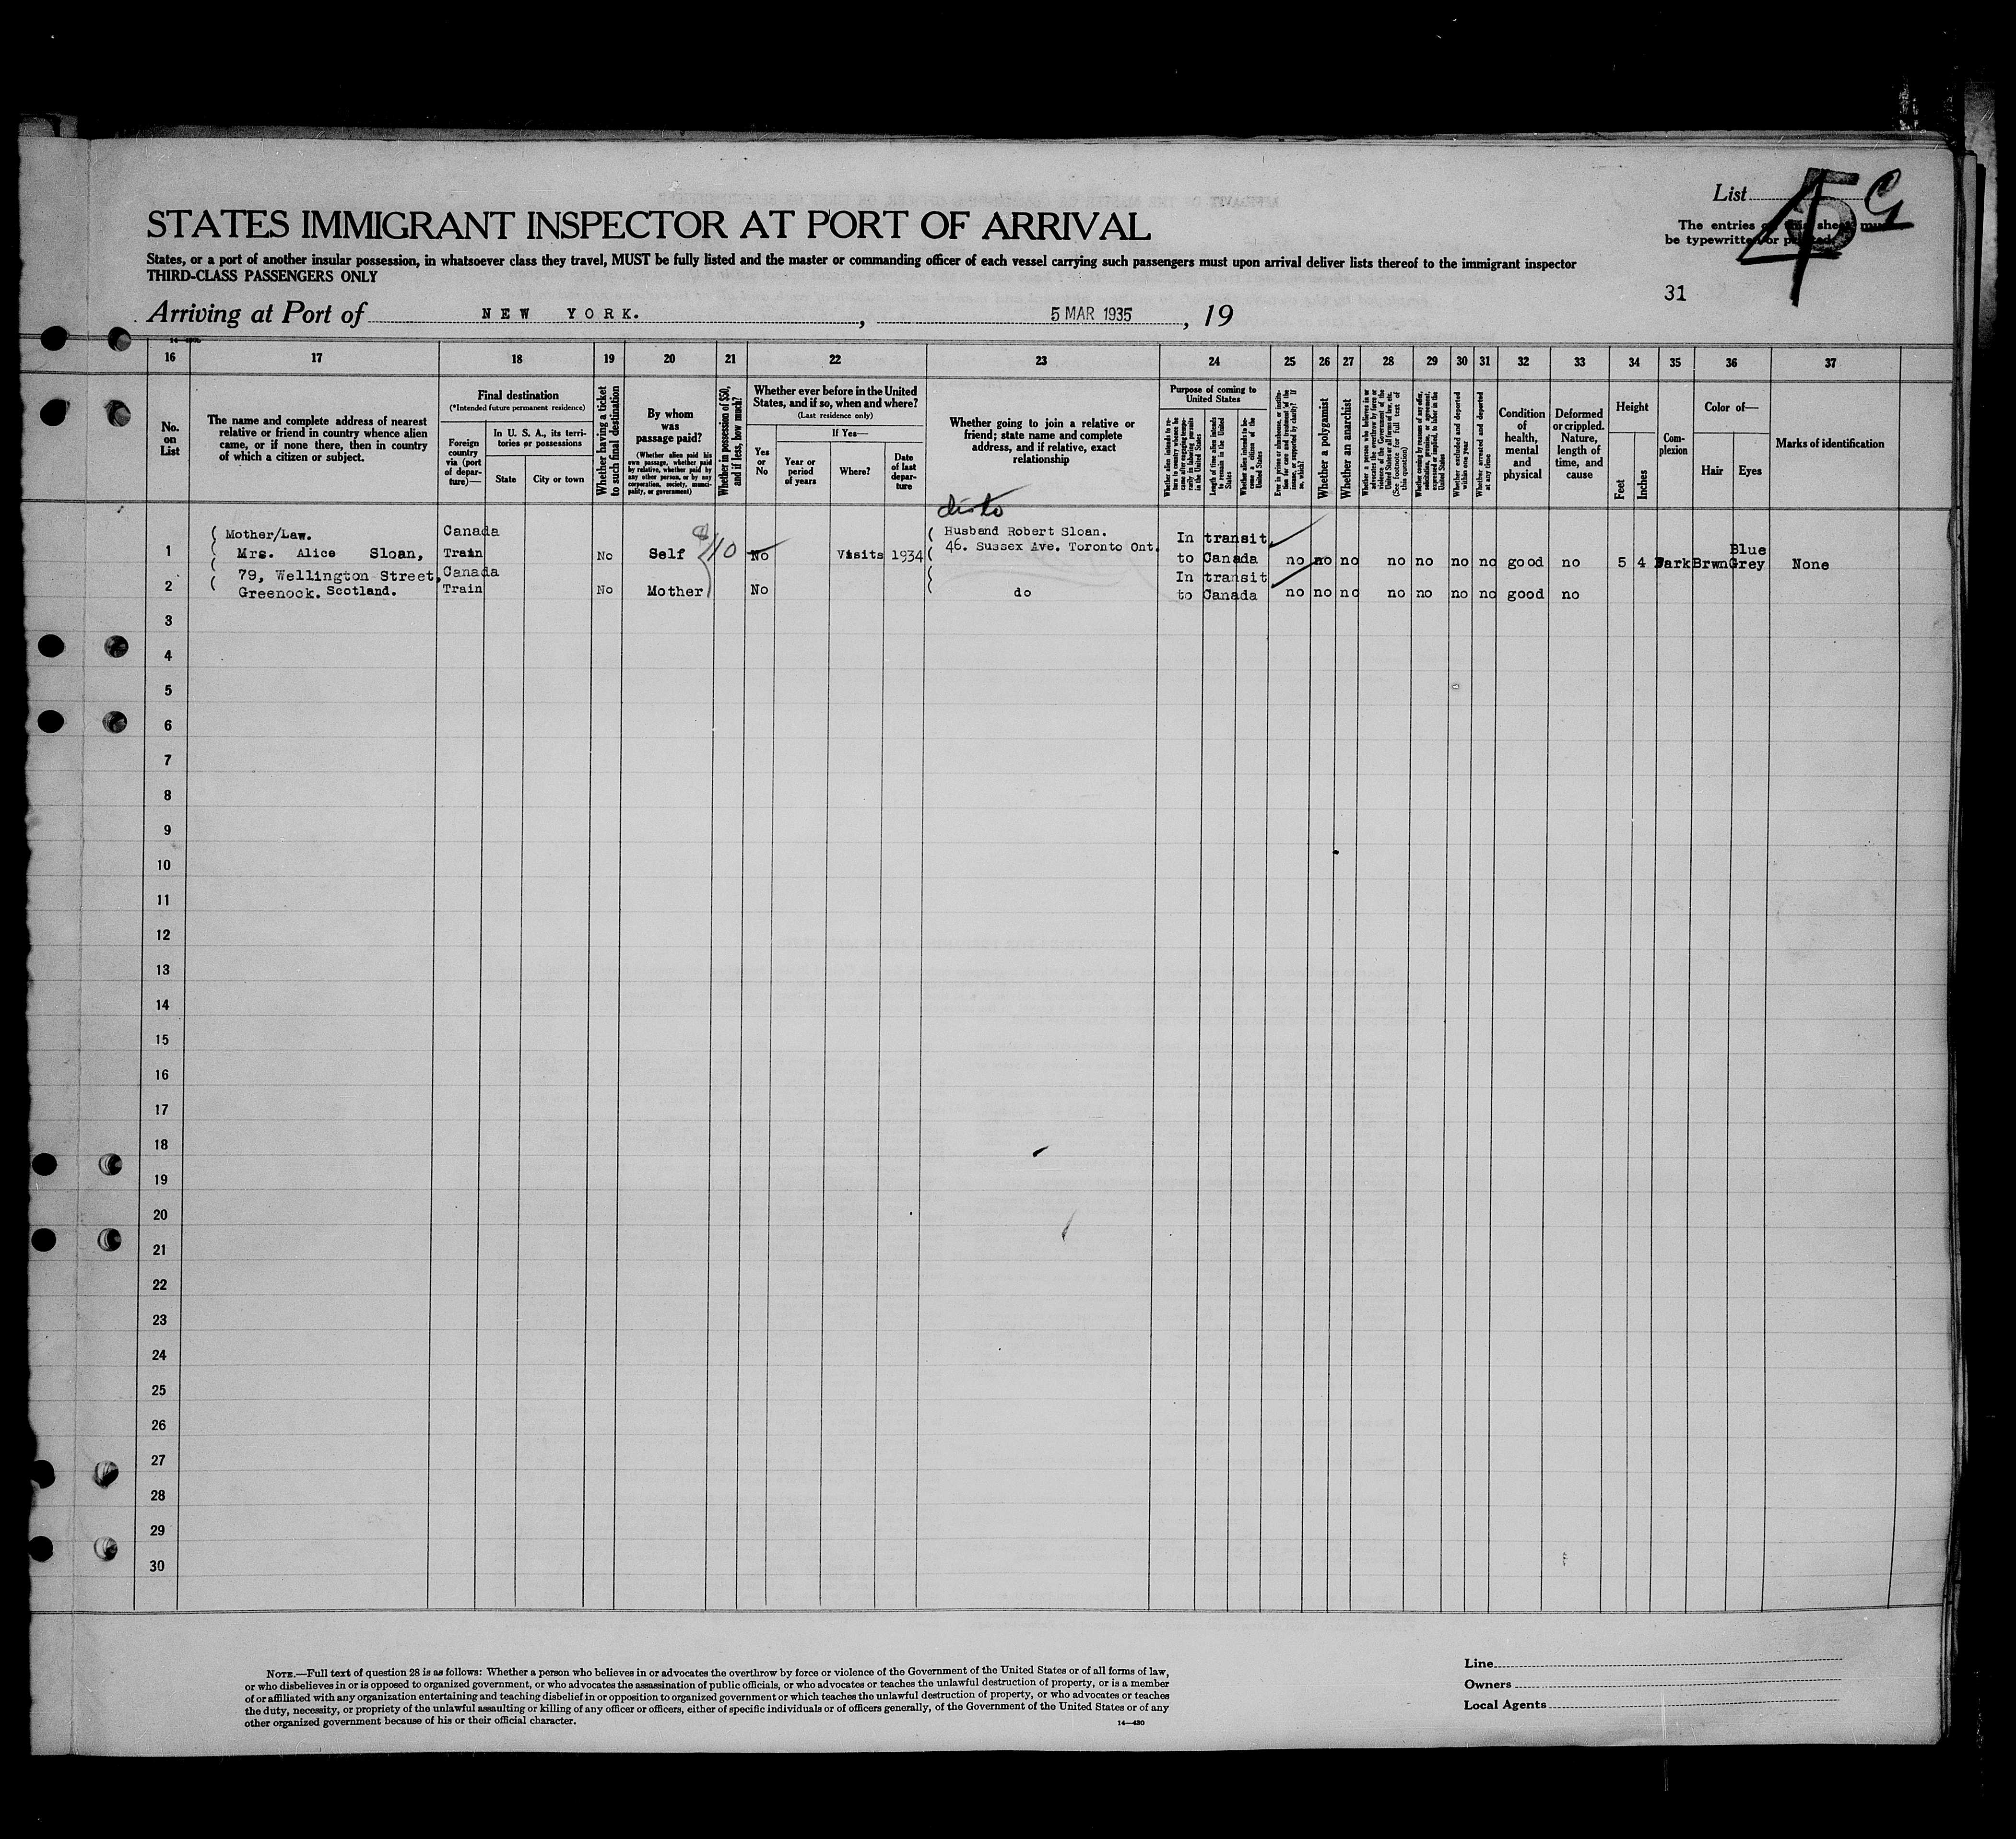 List
45 G
The entries on this sheet must
be typewritten or printed.
STATES IMMIGRANT INSPECTOR AT PORT OF ARRIVAL
States, or a port of another insular possession, in whatsoever class they travel, MUST be fully listed and the master or commanding officer of each vessel carrying such passengers must upon arrival deliver lists thereof to the immigrant inspector
THIRD-CLASS PASSENGERS ONLY
31
Arriving at Port of NEW YORK. , 5 MAR 1935 , 19
16 17 18 19 20 21 22 23 24 25 26 27 28 29 30 31 32 33 34 35 36 37
No.
on
List
The name and complete address of nearest
relative or friend in country whence alien
came, or if none there, then in country
of which a citizen or subject.
Final destination
(*Intended future permanent residence)
Foreign
country
via (port
of depar-
ture)—
In U. S. A., its terri-
tories or possessions
State
City or town
Whether having a ticket
to such final destination
By whom
was
passage paid?
(Whether alien paid his
own passage, whether paid
by relative, whether paid by
any other person, or by any
corporation, society, munici-
pality, or government)
Whether in possession of $50,
and if less, how much?
Whether ever before in the United
States, and if so, when and where?
(Last residence only)
Yes
or
No
If Yes—
Year or
period
of years
Where?
Date
of last
depar-
ture
Whether going to join a relative or
friend; state name and complete
address, and if relative, exact
relationship
Purpose of coming to
United States
Whether alien intends to re-
turn to country whence he
came after engaging tempo-
rarily in laboring pursuits
in the United States
Length of time alien intends
to remain in the United
States
Whether alien intends to be-
come a citizen of the
United States
Ever in prison or almshouse, or institu-
tion for care and treatment of the
insane, or supported by charity? If
so, which?
Whether a polygamist
Whether an anarchist
Whether a person who believes in or
advocates the overthrow by force or
violence of the Government of the
United States or all forms of law, etc.
(See footnote for full text of
this question)
Whether coming by reasons of any offer,
solicitation, promise, or agreement,
expressed or implied, to labor in the
United States
Whether excluded and deported
within one year
Whether arrested and deported
at any time
Condition
of
health,
mental
and
physical
Deformed
or crippled.
Nature,
length of
time, and
cause
Height
Feet
Inches
Com-
plexion
Color of—
Hair
Eyes
Marks of identification
disto
( Mother/Law. Canada ( Husband Robert Sloan. In transit
1 ( Mrs. Alice Sloan, Train No Self 110 No Visits 1934 ( 46. Sussex Ave. Toronto Ont. to Canada no no no no no no no good no 5 4 Dark Brwn Blue Grey None
( 79, Wellington Street, Canada ( In transit
2 ( Greenock. Scotland. Train No Mother No ( do to Canada no no no no no no no good no
3
4
5
6
7
8
9
10
11
12
13
14
15
16
17
18
19
20
21
22
23
24
25
26
27
28
29
30
NOTE.—Full text of question 28 is as follows: Whether a person who believes in or advocates the overthrow by force or violence of the Government of the United States or of all forms of law,
or who disbelieves in or is opposed to organized government, or who advocates the assassination of public officials, or who advocates or teaches the unlawful destruction of property, or is a member
of or affiliated with any organization entertaining and teaching disbelief in or opposition to organized government or which teaches the unlawful destruction of property, or who advocates or teaches
the duty, necessity, or propriety of the unlawful assaulting or killing of any officer or officers, either of specific individuals or of officers generally, of the Government of the United States or of any
other organized government because of his or their official character.
14—430
Line
Owners
Local Agents